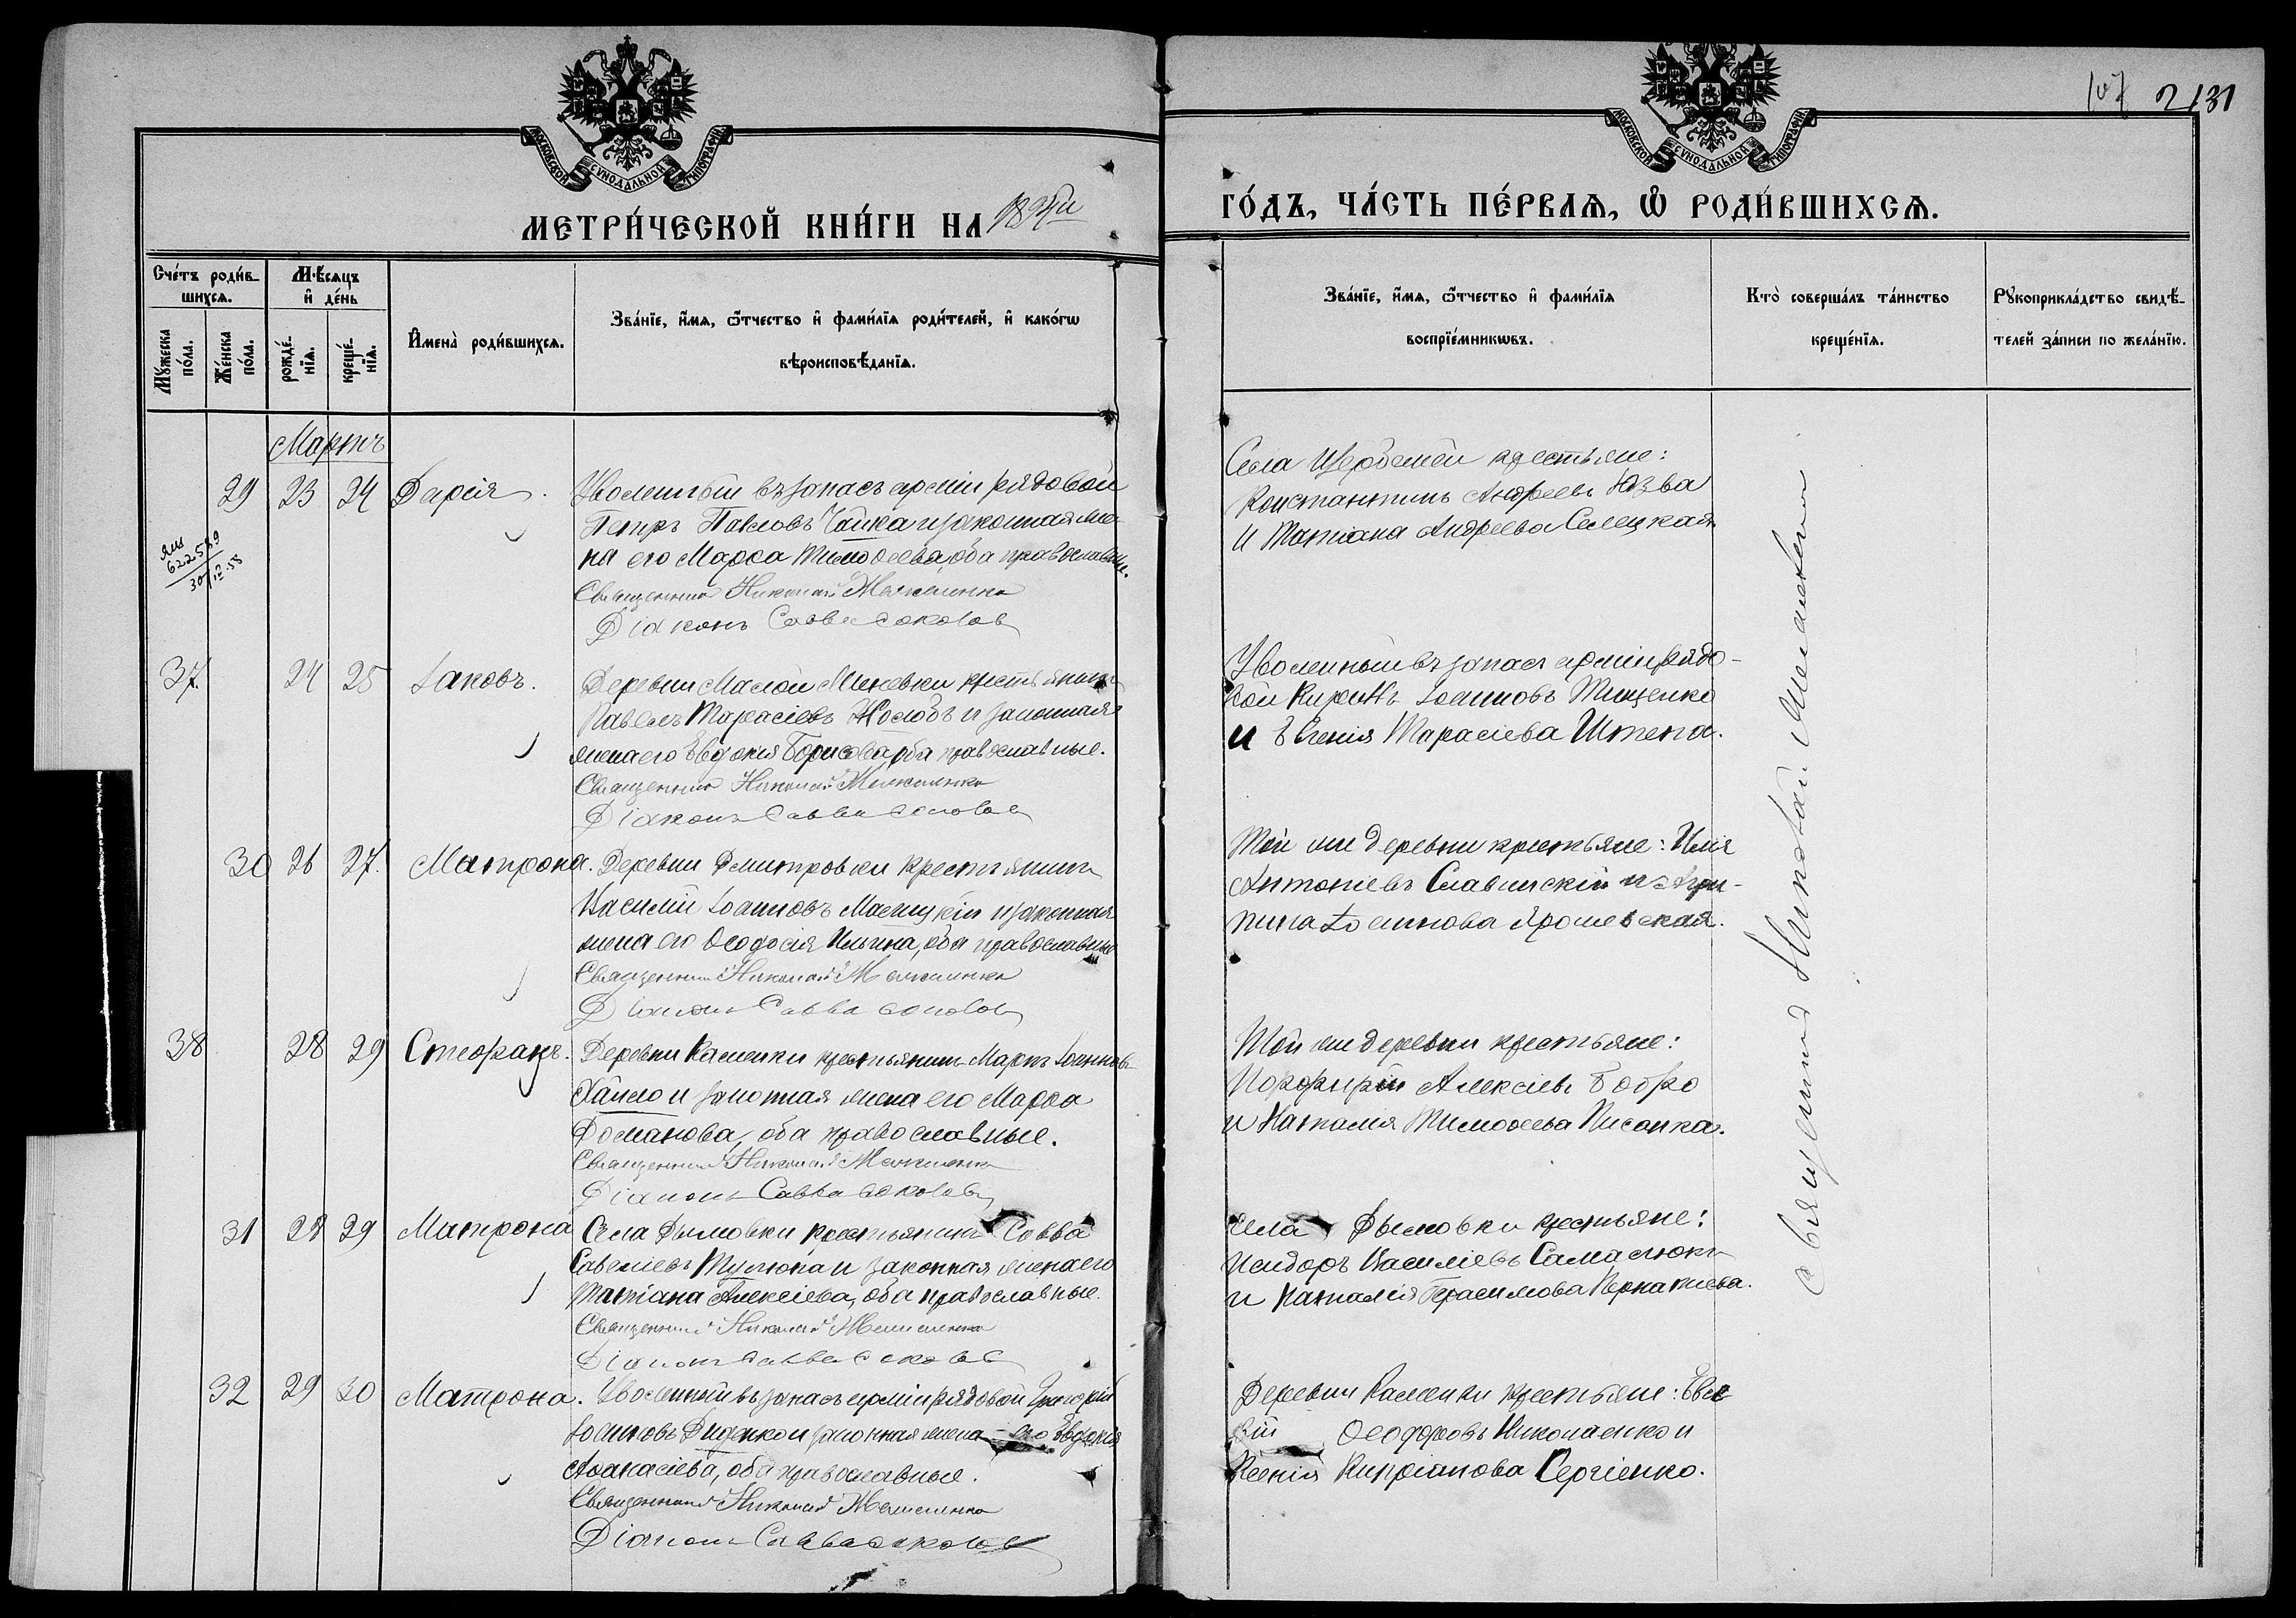 107 2131
МОСКОВСКОЙ СУНОДАЛЬНОЙ ТИПОГРАФІИ
МОСКОВСКОЙ СУНОДАЛЬНОЙ ТИПОГРАФІИ
МЕТРИ́ЧЕСКОЙ КНИ́ГИ НА
ГО́ДЪ, ЧА́СТЬ ПЕ́РВАЯ, Ѡ РОДИ́ВШИХСЯ.
Сче́тъ роди́в-
шихся.
Мѣ́сяцъ
и҆ де́нь
Мꙋ́жеска
по́ла.
Же́нска
по́ла.
рожде́-
нїя.
креще́-
нїя.
И҆мена̀ роди́вшихся.
Зва́нїе, и҆́мя, ѻ҆́тчество и҆ фами́лїя роди́телей, и҆ како́гѡ
вѣроисповѣ́данїя.
Зва́нїе, и҆́мя, ѻ҆́тчество и҆ фами́лїя
воспрїе́мникѡвъ.
Кто̀ соверша́лъ та́инство
креще́нїя.
Рꙋкоприкла́дство свидѣ́-
телей за́писи по жела́нїю.
Мартъ
29 23 24 Дарія. Уволенный въ запасъ арміи рядовой
Петръ Павловъ Чайка и законная же-
на его Марѳа Тимоѳеева, оба православны.
Священникъ Николай
Діаконъ Савва Соколов
622589
Села крестьяне:
Константинъ Андреевъ Юзва
и Татіана Андреева Селецкая
37. 24 25 Іаковъ. Деревни Малой крестьянинъ
Павелъ Тарасіевъ и законная
жена его Евдокія Борисова, оба православные.
Священникъ Николай
Діаконъ Савва Соколов
Уволенный въ запасъ арміи рядо-
вой Кириллъ Іоанновъ Тищенко
и Евгенія Тарасіева Штепа.
30 26 27. Матрона. Деревни Дмитровки крестьянинъ
Василій Іоанновъ и законная
жена его Ѳеодосія Ильина, оба православные
Священникъ Николай
Діаконъ Савва Соколов
Той же деревни крестьяне: Илія
Антоніевъ Славинскій и Агри-
пина Іоаннова Ярошевская.
38 28 29 Стефанъ. Деревни Каменки крестьянинъ Маркъ Іоанновъ
Хайло и законная жена его Марѳа
Романова, оба православные.
Священникъ Николай
Діаконъ Савва Соколов
Той же деревни крестьяне:
Порфирій Алексіевъ Бобро
и Наталія Тимоѳеева Писанка.
31 28 29 Матрона Села Дымовки крестьянинъ Савва
Савеліевъ Тулюпа и законная жена его
Татіана Алексіева, оба православные.
Священникъ Николай
Діаконъ Савва Соколов
Села Дымовки крестьяне:
Исидоръ Василіевъ Самалюкъ
и Наталія Герасимова
32 29 30 Матрона. Уволенный въ запасъ арміи рядовой Григорій
Іоанновъ Диденко и законная жена его Евдокія
Аѳанасіева, оба православные.
Священникъ Николай
Діаконъ Савва Соколов
Деревни Каменки крестьяне:
Ѳеодоровъ Николаенко и
Ксенія Кипріанова Сергіенко.
Священникъ Николай